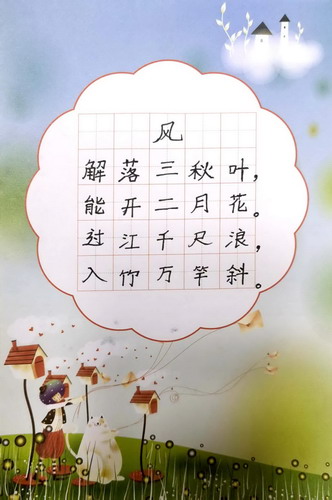 风
解落三秋叶，
能开二月花。
过江千尺浪，
入竹万竿斜。